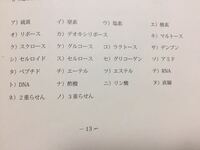 ア）炭素 イ）窒素 ウ）塩素 エ）酸素
オ）リボース カ）デオキシリボース キ）マルトース
ク）スクロース ケ）グルコース コ）ラクトース サ）デンプン
シ）セルロイド ス）セルロース セ）グリコーゲン ソ）アミド
タ）ペプチド チ）エーテル ツ）エステル テ）RNA
ト）DNA ナ）酢酸 ニ）リン酸 ヌ）直鎖
ネ）２重らせん ノ）３重らせん
－ 13 －